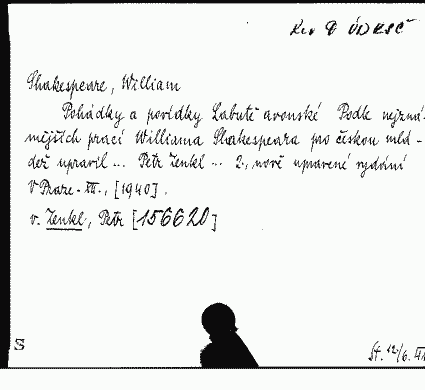 Shakespeare, William
Pohádky a povídky Labutě avonské Podle nejzná-
mějších prací Williama Shakespeara pro českou mlá-
dež upravil ... Petr Zenkl ... 2., nově upravené vydání
V Praze - XII., [1940].
v. Zenkl, Petr [156620]
S
St. 12/6. 41